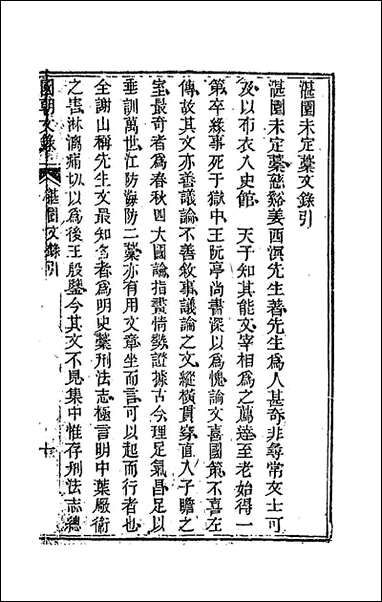 湛園未定藁文錄引
湛園未定藁慈谿姜西溟先生著先生爲人甚奇非尋常文士可
及以布衣入史館 天子知其能文宰相爲之薦達至老始得一
第卒緣事死于獄中王阮亭尚書深以爲愧論文喜國策不喜左
傳故其文亦善議論不善敘事議論之文縱橫貫穿直入子瞻之
室最奇者爲春秋四大國論指畫情勢證據古今理足氣昌足以
垂訓萬世江防海防二藁亦有用文章坐而言可以起而行者也
全謝山稱先生文最知名者爲明史藁刑法志極言明中葉厰衛
之害淋漓痛切以爲後王殷鑒今其文不見集中惟存刑法志總
國朝文錄 湛園文錄引 十